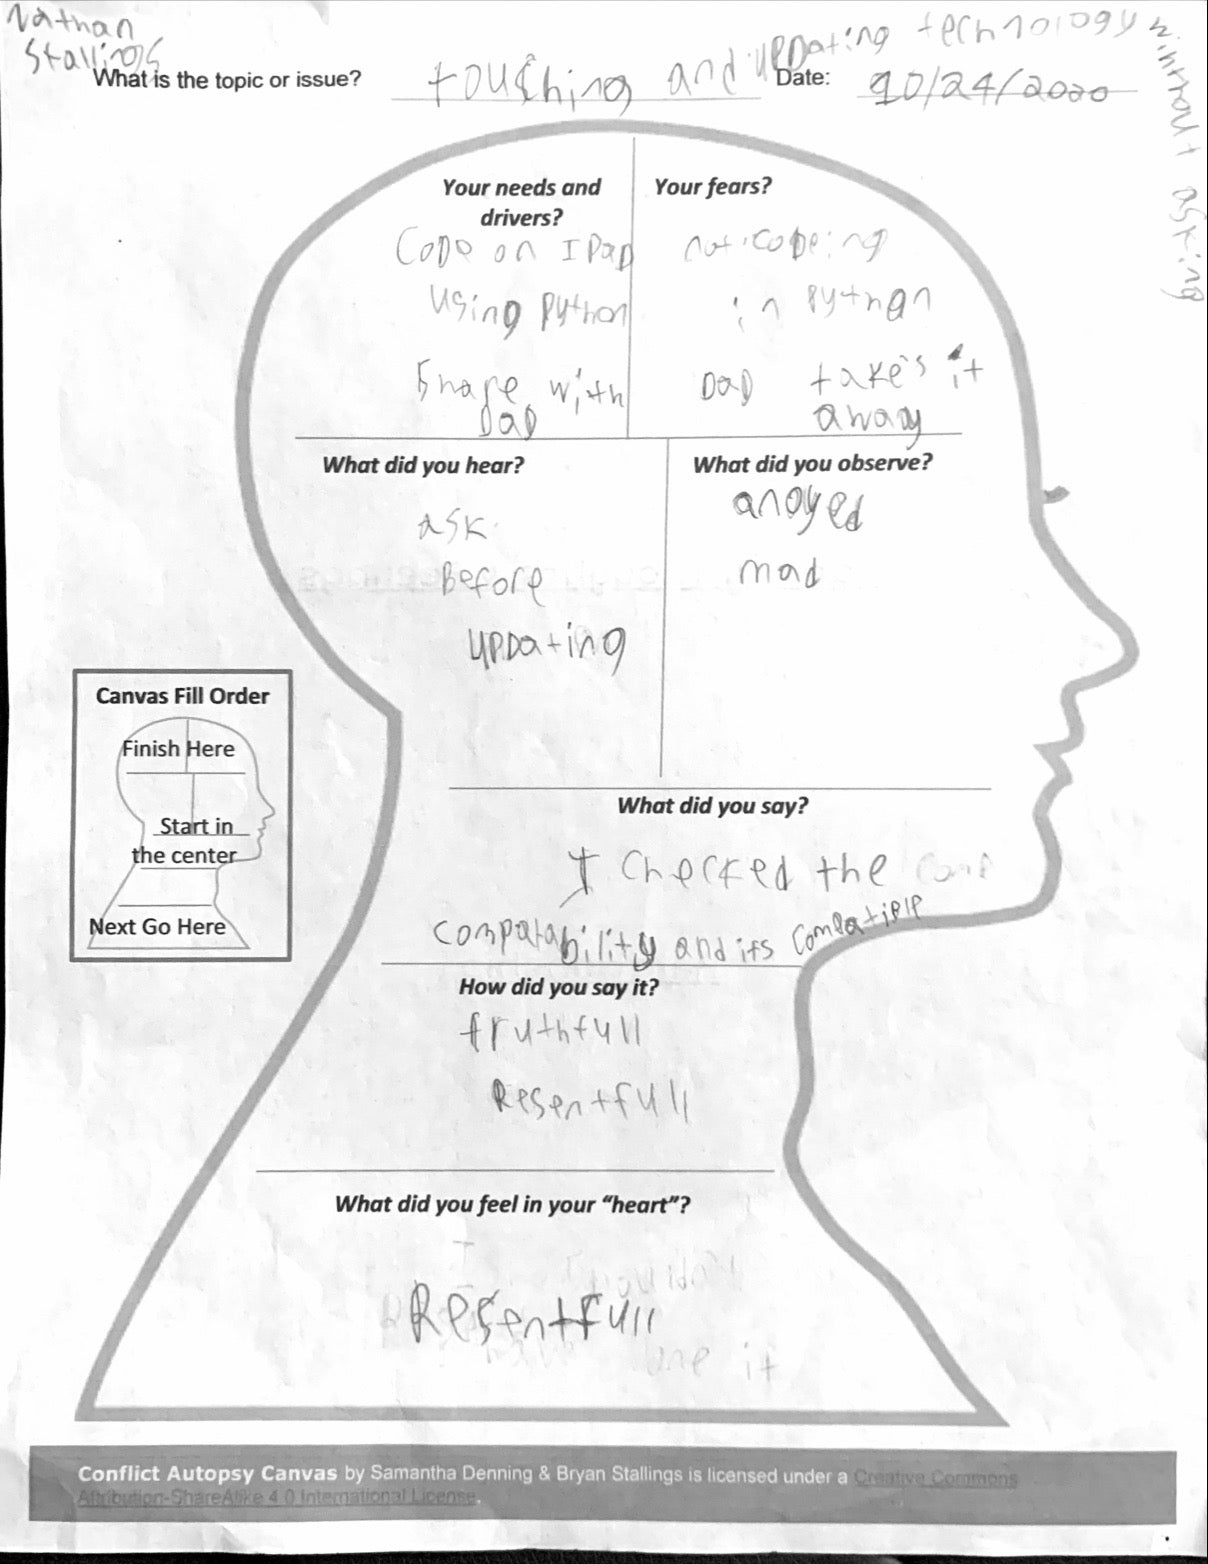 Nathan
Stallings
What is the topic or issue? touching and updating technology without asking
Date: 10/24/2020
Your needs and
drivers?
Code on IPad
using python
Share with
Dad
Your fears?
not codeing
in Python
Dad take's it
away
What did you hear?
ask
Before
updating
What did you observe?
anoyed
mad
What did you say?
I checked the
compatability and its compatible
How did you say it?
truthfull
Resentfull
What did you feel in your “heart”?
Resentfull
Canvas Fill Order
Finish Here
Start in
the center
Next Go Here
Conflict Autopsy Canvas by Samantha Denning & Bryan Stallings is licensed under a Creative Commons
Attribution-ShareAlike 4.0 International License.